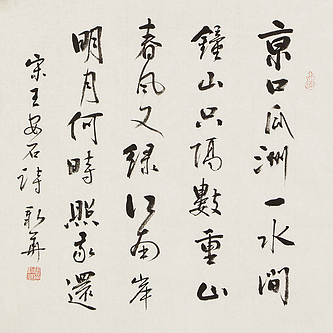 京口瓜洲一水間
鐘山只隔數重山
春風又綠江南岸
明月何時照我還
宋王安石詩